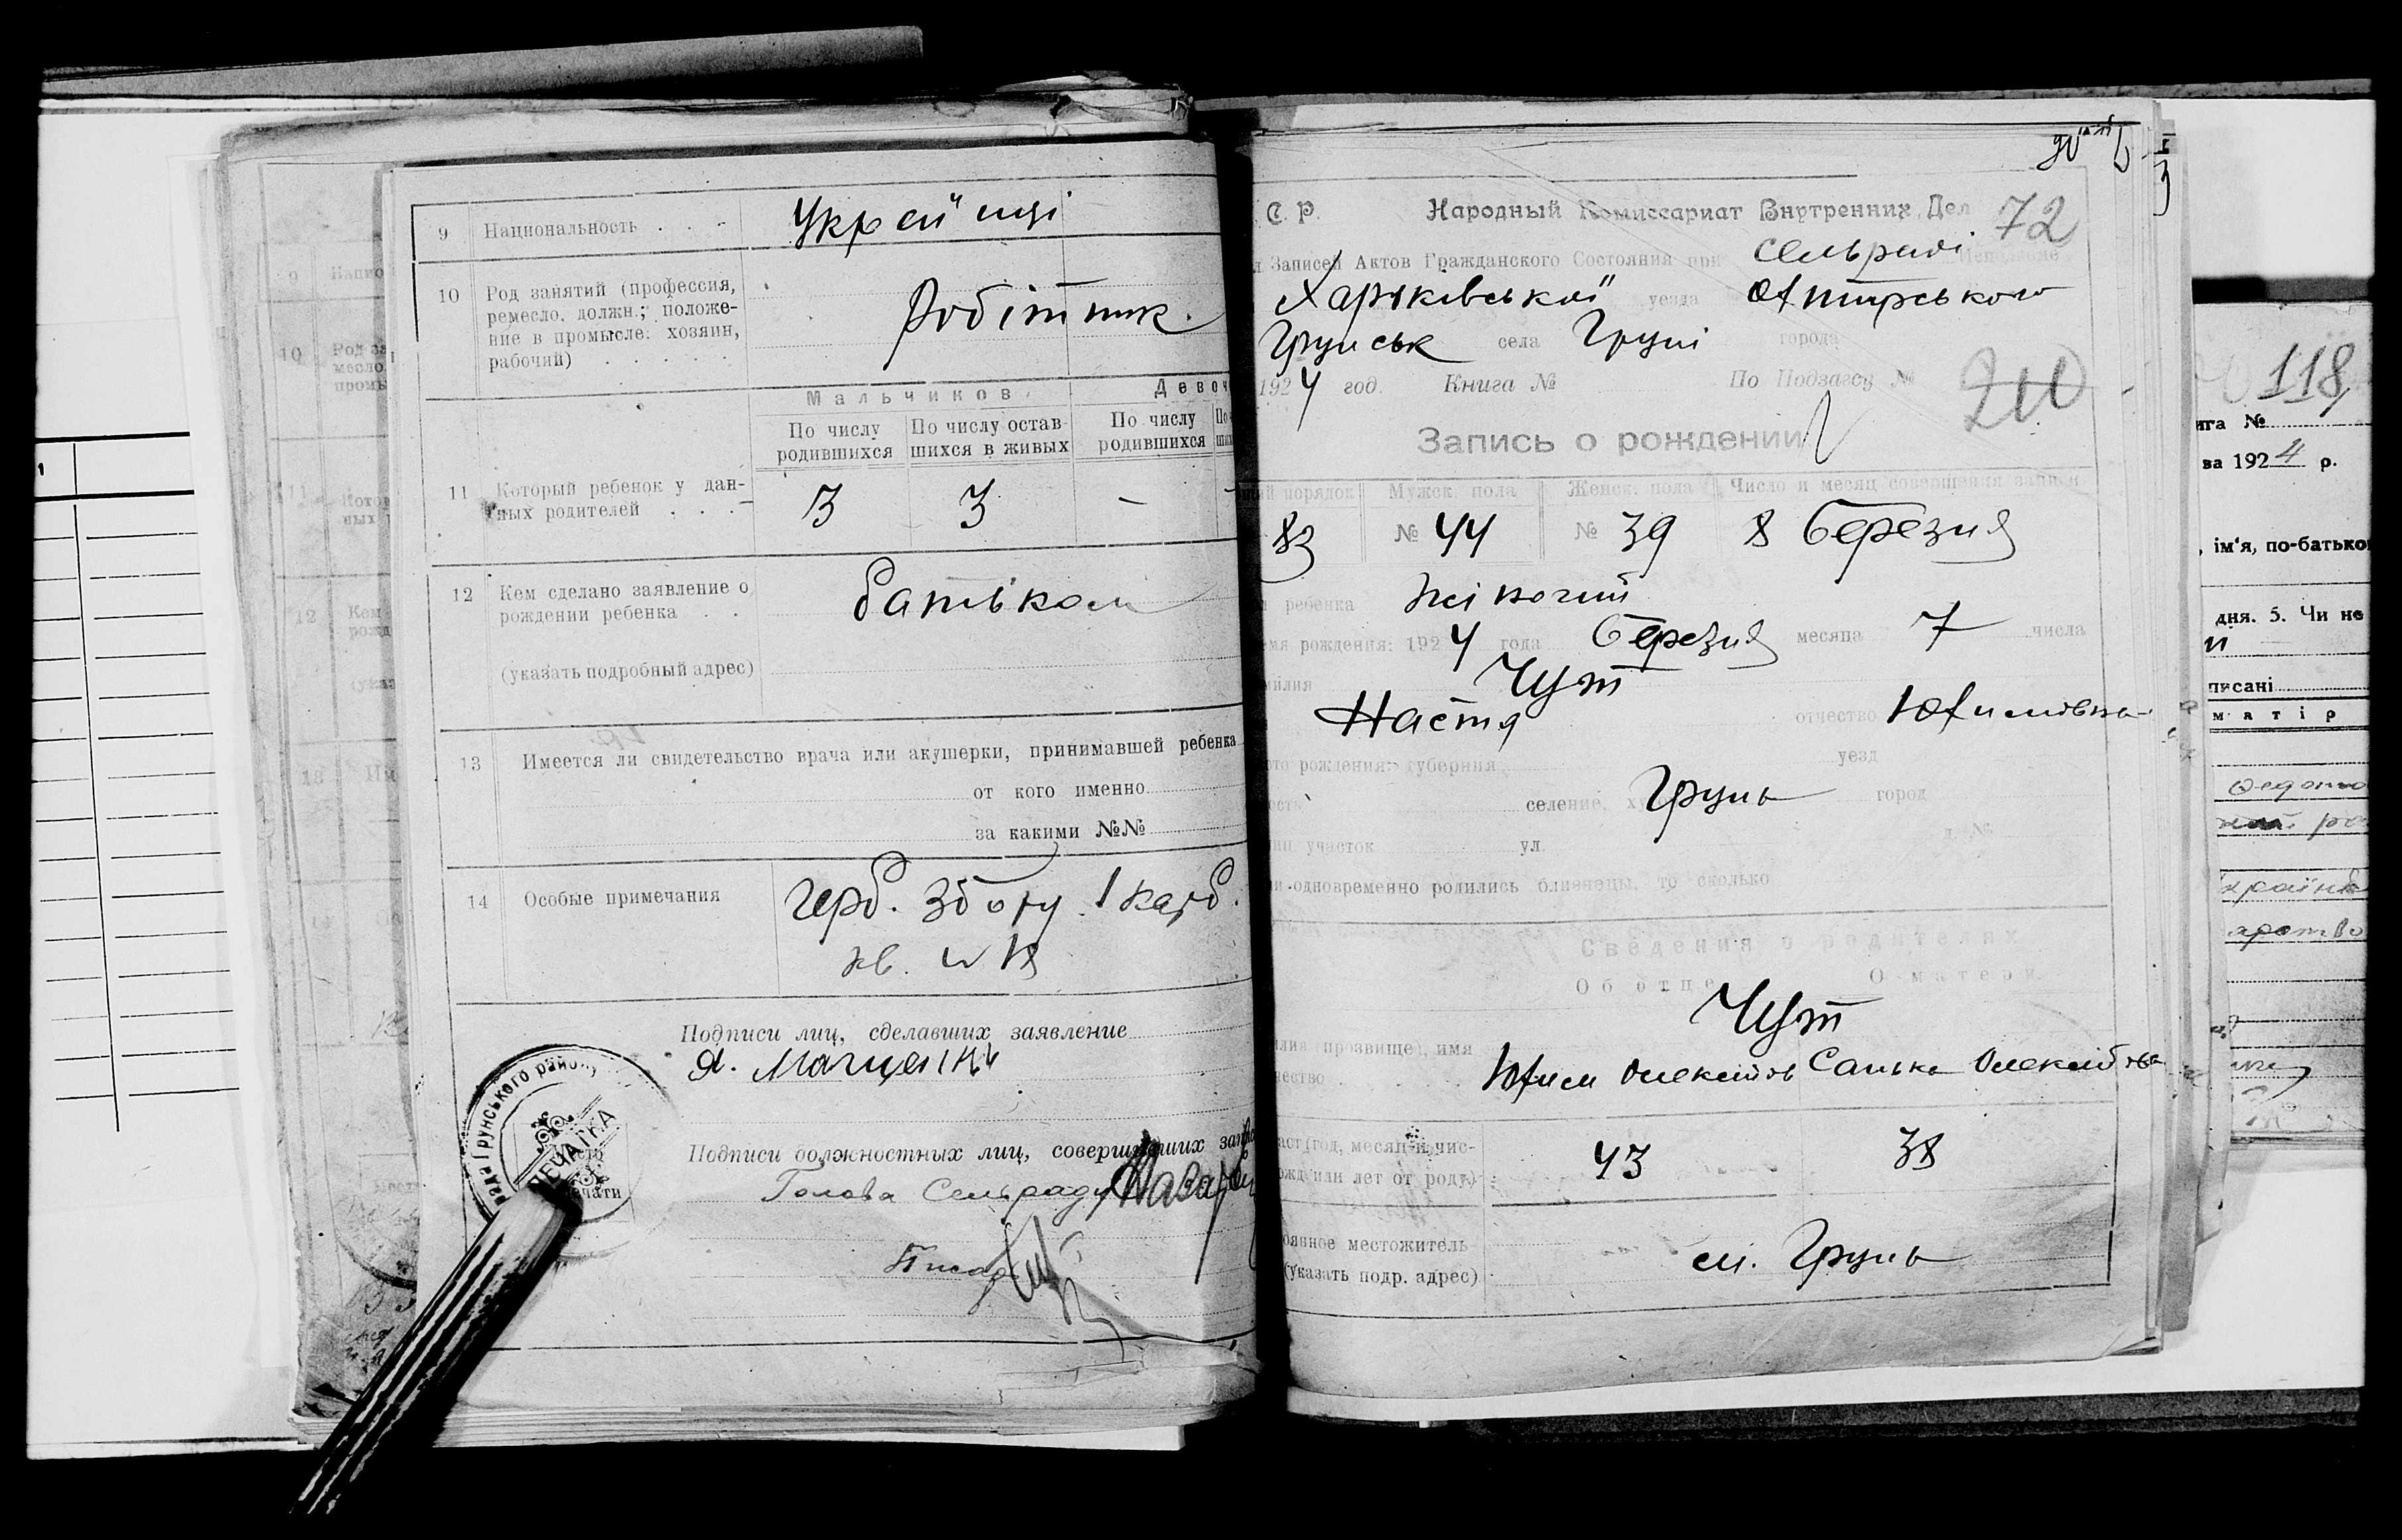 9 Национальность . . . Українці
10 Род занятий (профессия,
ремесло, должн.; положе-
ние в промысле: хозяин,
рабочий) . . . . . .
Робітник.
Мальчиков
По числу родившихся
По числу остав-
шихся в живых
По числу
родившихся
11 Который ребенок у дан-
ных родителей . . .
3 3 –
12 Кем сделано заявление о
рождении ребенка . .
батьком
(указать подробный адрес)
13 Имеется ли свидетельство врача или акушерки, принимавшей ребенка
от кого именно
за какими №№
14 Особые примечания
герб. збору 1 карб.
кв.
Подписи лиц, сделавших заявление
Подписи должностных лиц, совершивших
Голова Сельради
Писар
Грунського району
ПЕЧАТКА
С. Р. Народный Комиссариат Внутренних Дел
72
Записей Актов Гражданского Состояния при Сельраді
Харьківської уезда Охтирського
Грунськ села Груні города
1924 год. Книга № По Подзагсу №
Запись о рождении
порядок Мужск. пола Женск. пола Число и месяц совершения записи
83 № 44 № 39 8 березня
ребенка жіночий
рождения: 1924 года березня месяца 7 числа
Чут
Настя отчество Юхимівна
рождения: губерния уезд
селение, Грунь город
участок ул. д. №
одновременно родились близнецы, то сколько
Сведения о родителях
Об отце О матери
Чут
прозвище), имя
Юхим Олексіїв Санька Олексіївна
(год, месяц и чис-
или лет от роду)
43 38
местожитель-
(указать подр. адрес)
м. Грунь
118
№
192 4 р.
ім'я, по-батькові
дня. 5. Чи не
писані
матір